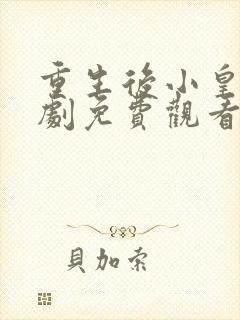 重生後小皇
劇免費觀看
貝加索